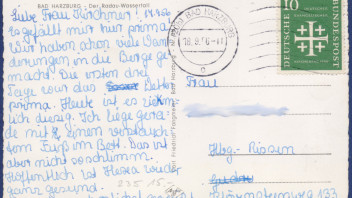 BAD HARZBURG · Der Radau-Wasserfall
Liebe Frau Kirchner!
Es gefällt mir hier prima.
Wir haben schon viel Wan-
derungen in die Berge ge-
macht. Die ersten drei
Tage war das Wetter
prima. Heute ist es ziem-
lich diesig. Ich liege gera-
de mit einem verstauch-
tem Fuß im Bett. Das ist
aber nicht so schlimm.
Hoffentlich ist Herra wieder
ganz gesund.
235 15.-
BAD HARZBURG
18.9.56-11
c
10
DEUTSCHE BUNDESPOST
DEUTSCHER
EVANGELISCHER
Frau
Hbg.-Rissen
133